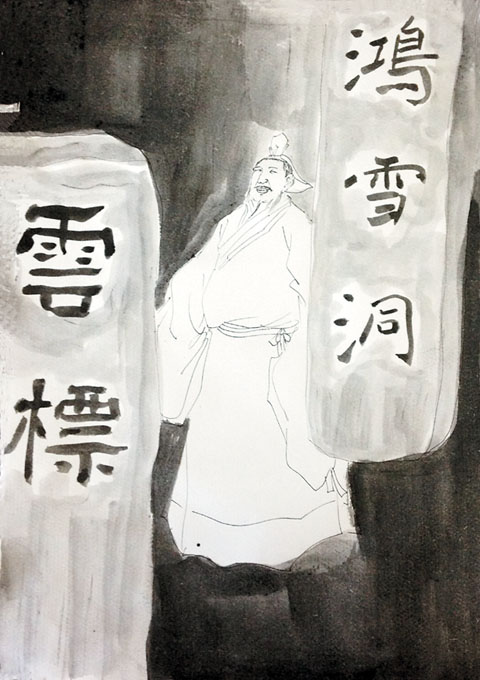 鴻雪洞
雲標